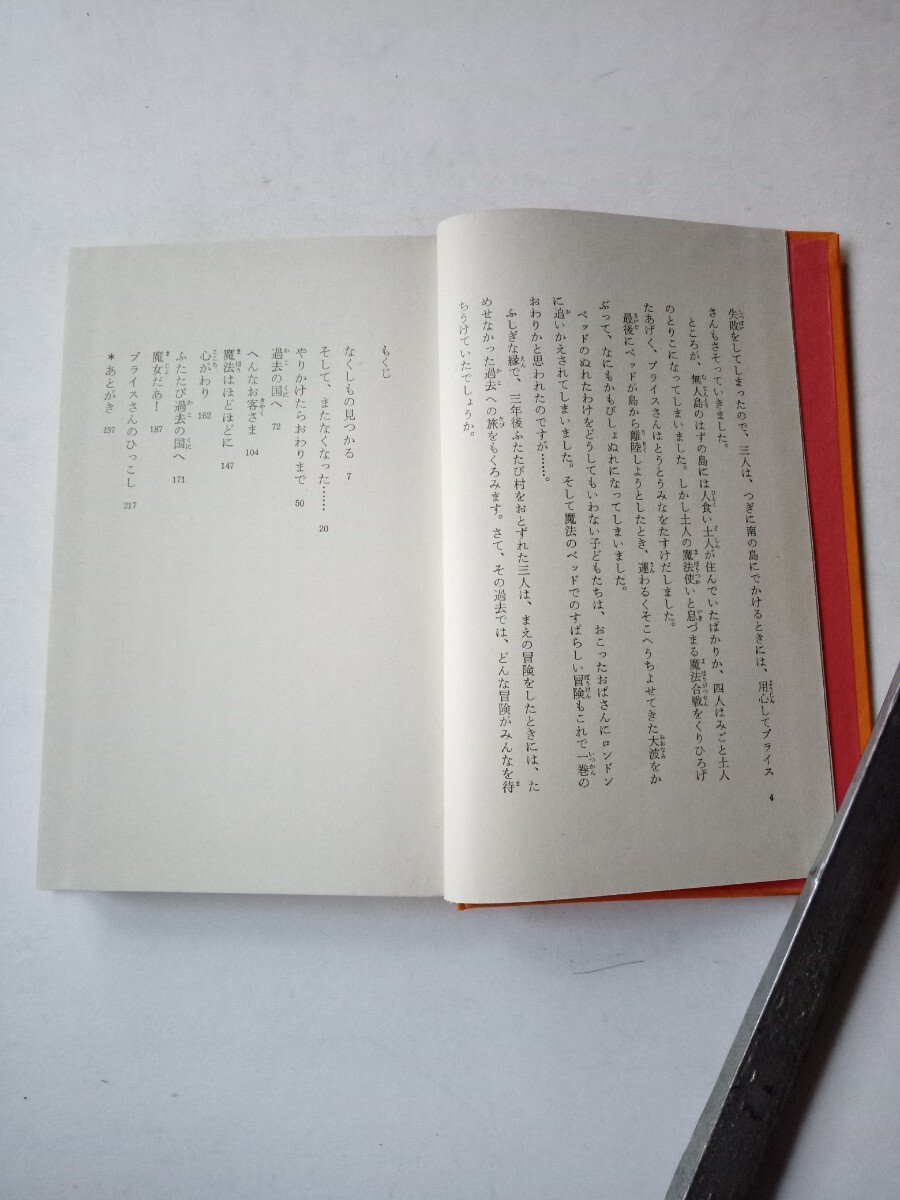 失敗をしてしまったので、三人は、つぎに南の島にでかけるときには、用心してプライス
さんもさそっていきました。
ところが、無人島のはずの島には人食い土人が住んでいたばかりか、四人はみごと土人
のとりこになってしまいました。しかし土人の魔法使いと息づまる魔法合戦をくりひろげ
たあげく、プライスさんはとうとうみなをたすけだしました。
最後にベッドが島から離陸しようとしたとき、運わるくそこへうちよせてきた大波をか
ぶって、なにもかもびしょぬれになってしまいました。
ベッドのぬれたわけをどうしてもいわない子どもたちは、おこったおばさんにロンドン
に追いかえされてしまいました。そして魔法のベッドでのすばらしい冒険もこれで一巻の
おわりかと思われたのですが……。
ふしぎな縁で、三年後ふたたび村をおとずれた三人は、まえの冒険をしたときには、た
めせなかった過去への旅をもくろみます。さて、その過去では、どんな冒険がみんなを待
ちうけていたでしょうか。
4
もくじ
なくしもの見つかる 7
そして、またなくなった…… 20
やりかけたらおわりまで 50
過去の国へ 72
へんなお客さま 104
魔法はほどほどに 147
心がわり 162
ふたたび過去の国へ 171
魔女だあ! 187
プライスさんのひっこし 217
*あとがき 237